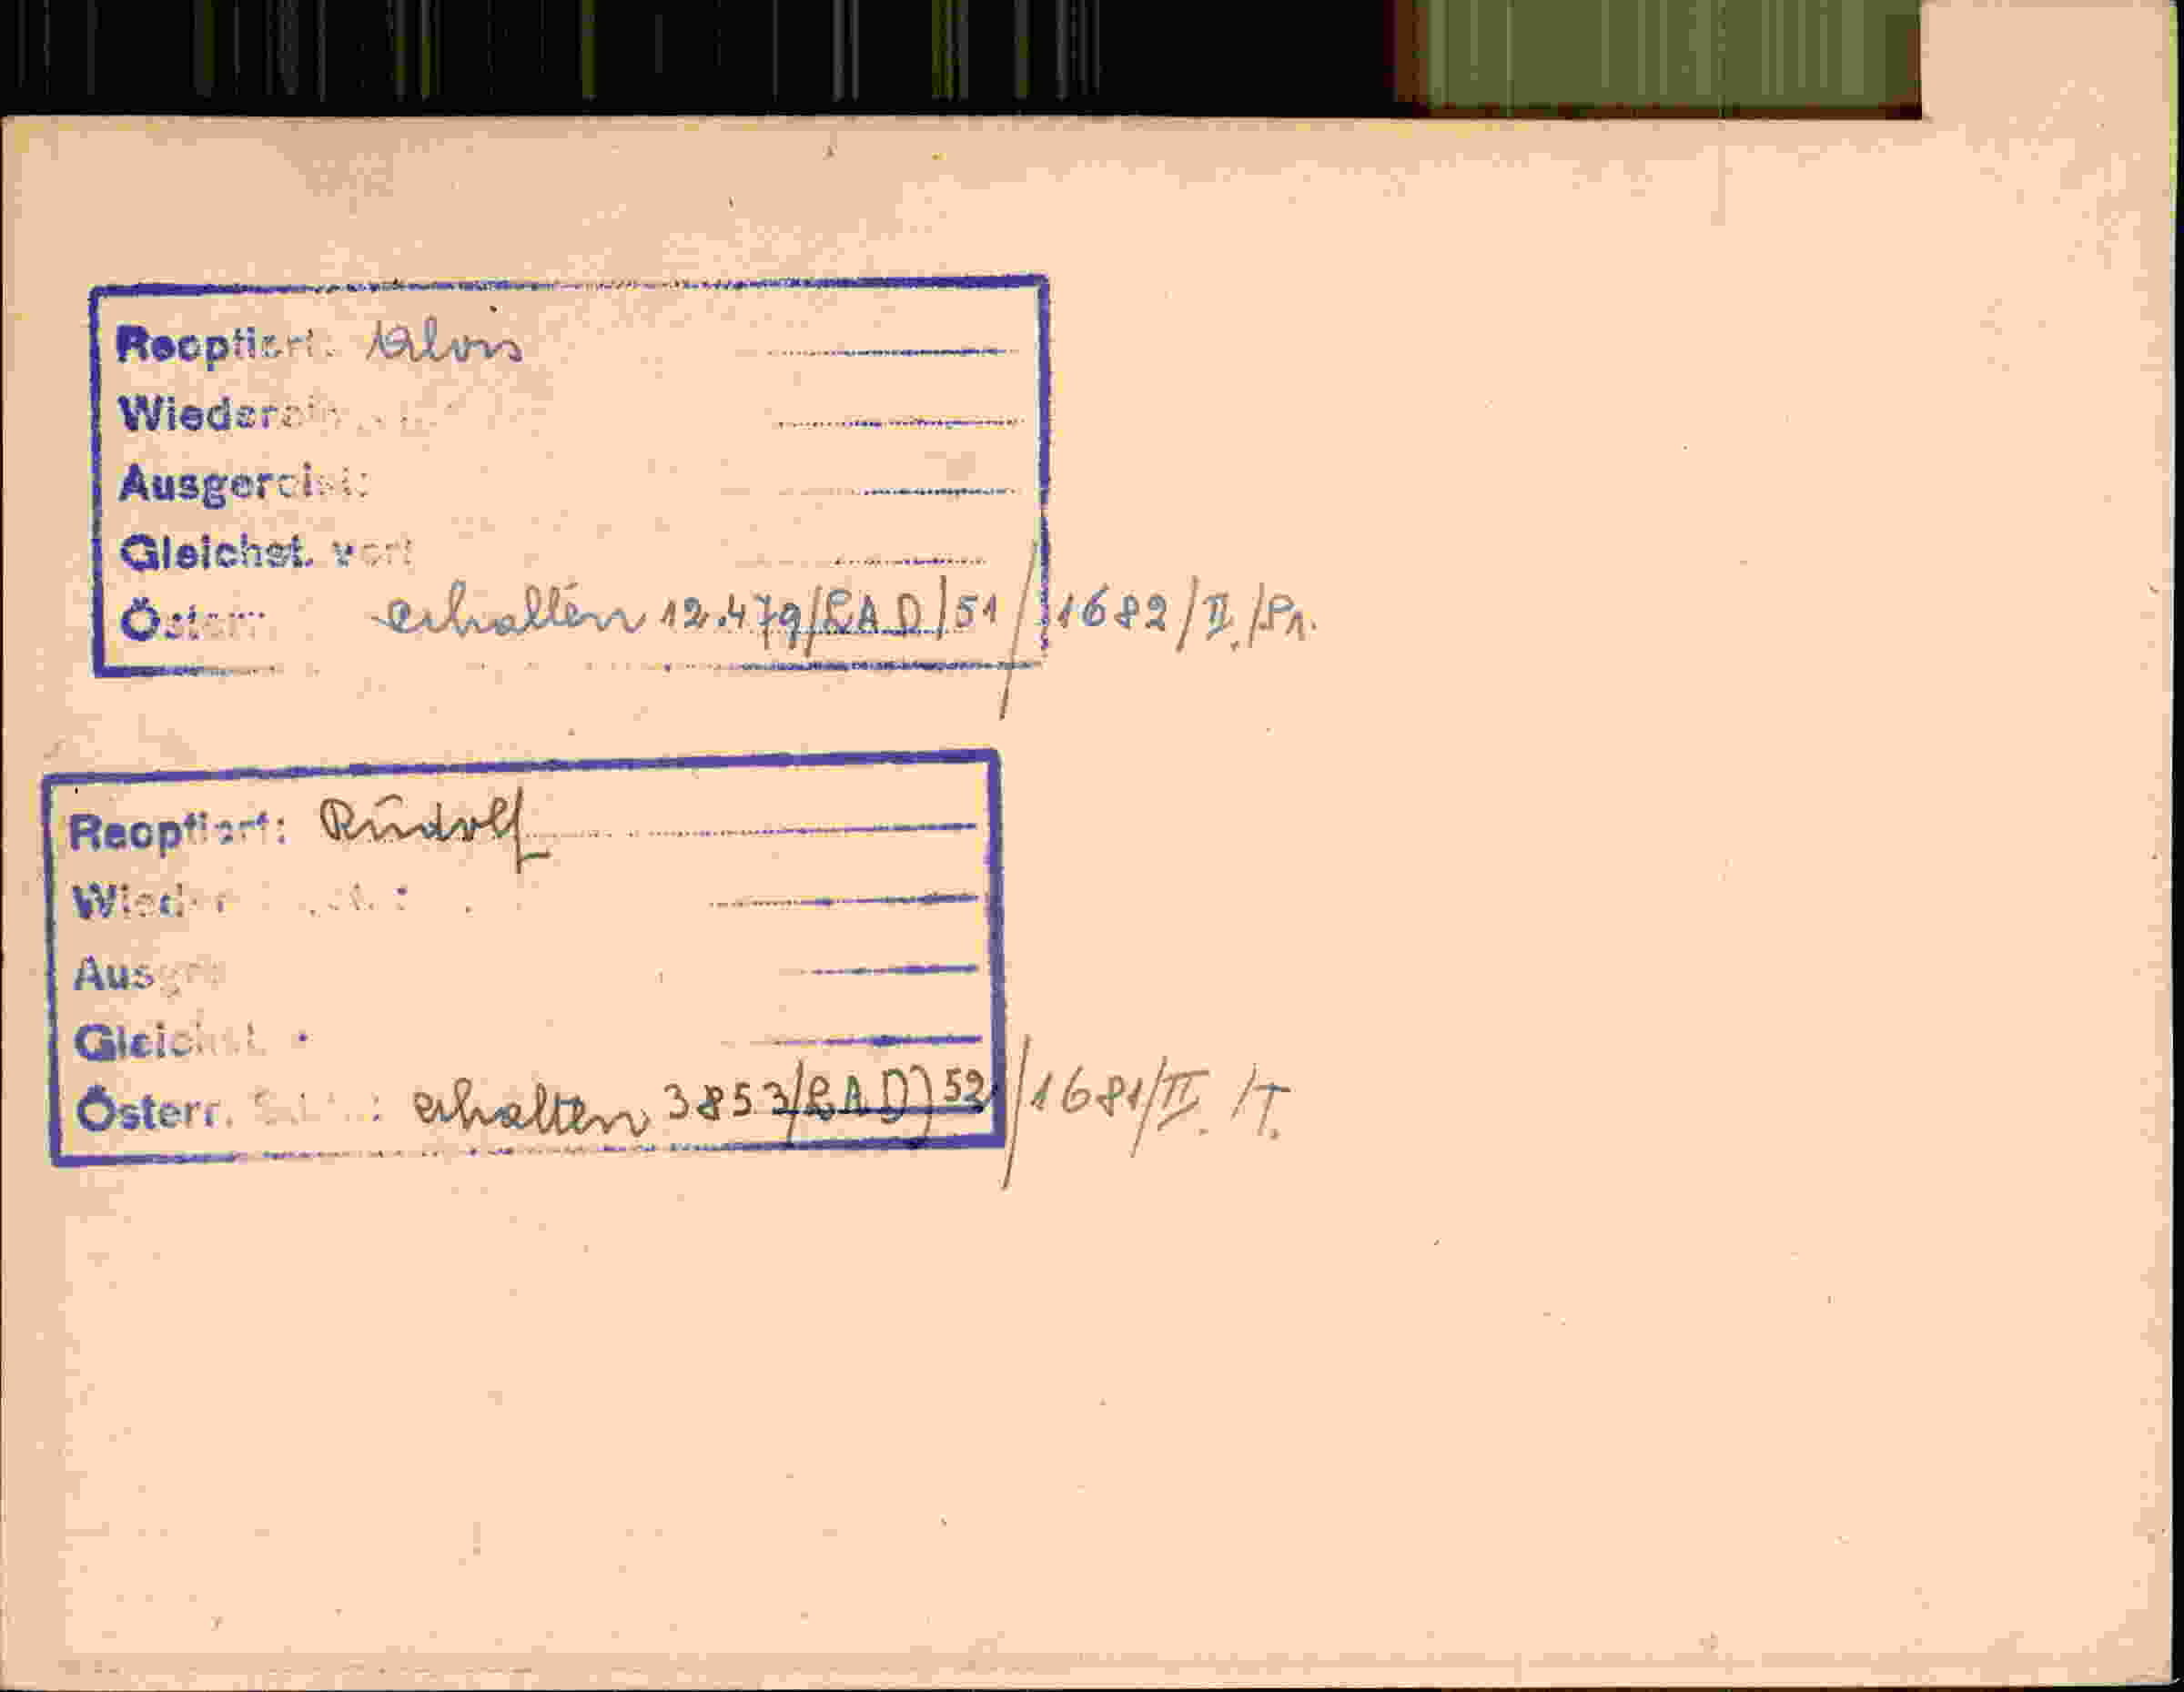 Reoptiert: Alois
Wiedereing
Ausgereist:
Gleichst. vert
Österr. erhalten 12.479/LAD/51 / 1682/II./Pr.
Reoptiert: Rudolf
Wieder
Ausger
Gleichst.
Österr. erhalten 3853/LAD/52 / 1681/II. /T.